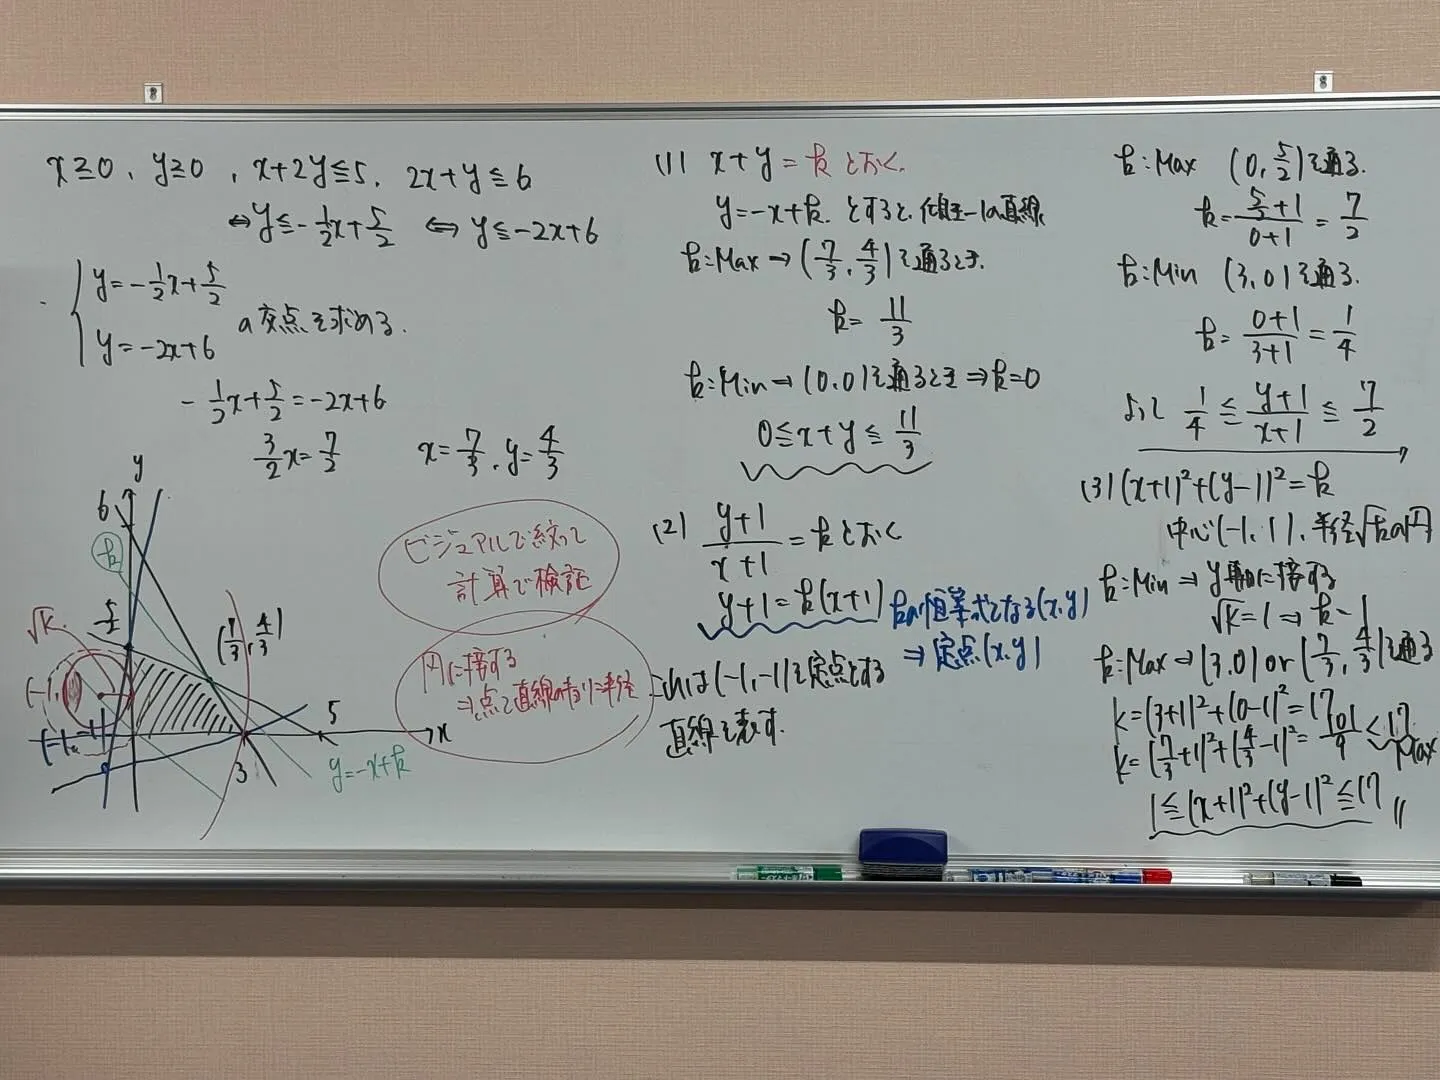 x≧0, y≧0, x+2y≦5, 2x+y≦6
⇔y≦-1/2x+5/2 ⇔ y≦-2x+6
y=-1/2x+5/2
y=-2x+6
の交点を求める.
-1/2x+5/2=-2x+6
3/2x=7/2 x=7/3, y=4/3
y
6
k
5/2
√k.
(7/3, 4/3)
(-1,
-1
5
x
3
y=-x+k
ビジュアルで絞って
計算で検証
円に接する
⇒点と直線のキョリ=半径
(1) x+y=kとおく.
y=-x+k. とすると, 傾き-1の直線
k:Max→(7/3, 4/3)を通るとき.
k=11/3
k:Min→(0,0)を通るとき⇒k=0
0≦x+y≦11/3
(2) y+1/x+1=kとおく
y+1=k(x+1)
kの恒等式となる(x,y)
⇒定点(x,y)
これは(-1,-1)を定点とする
直線を表す.
k:Max (0,5/2)を通る.
k=5/2+1/0+1=7/2
k:Min (3,0)を通る.
k=0+1/3+1=1/4
よって 1/4≦y+1/x+1≦7/2
(3)(x+1)²+(y-1)²=k
中心(-1,1), 半径√kの円
k:Min→y軸に接する
√k=1⇒k=1
k:Max→(3,0)or(7/3,4/3)を通る
k=(3+1)²+(0-1)²=17
k=(7/3+1)²+(4/3-1)²=101/9<17
Max
1≦(x+1)²+(y-1)²≦17